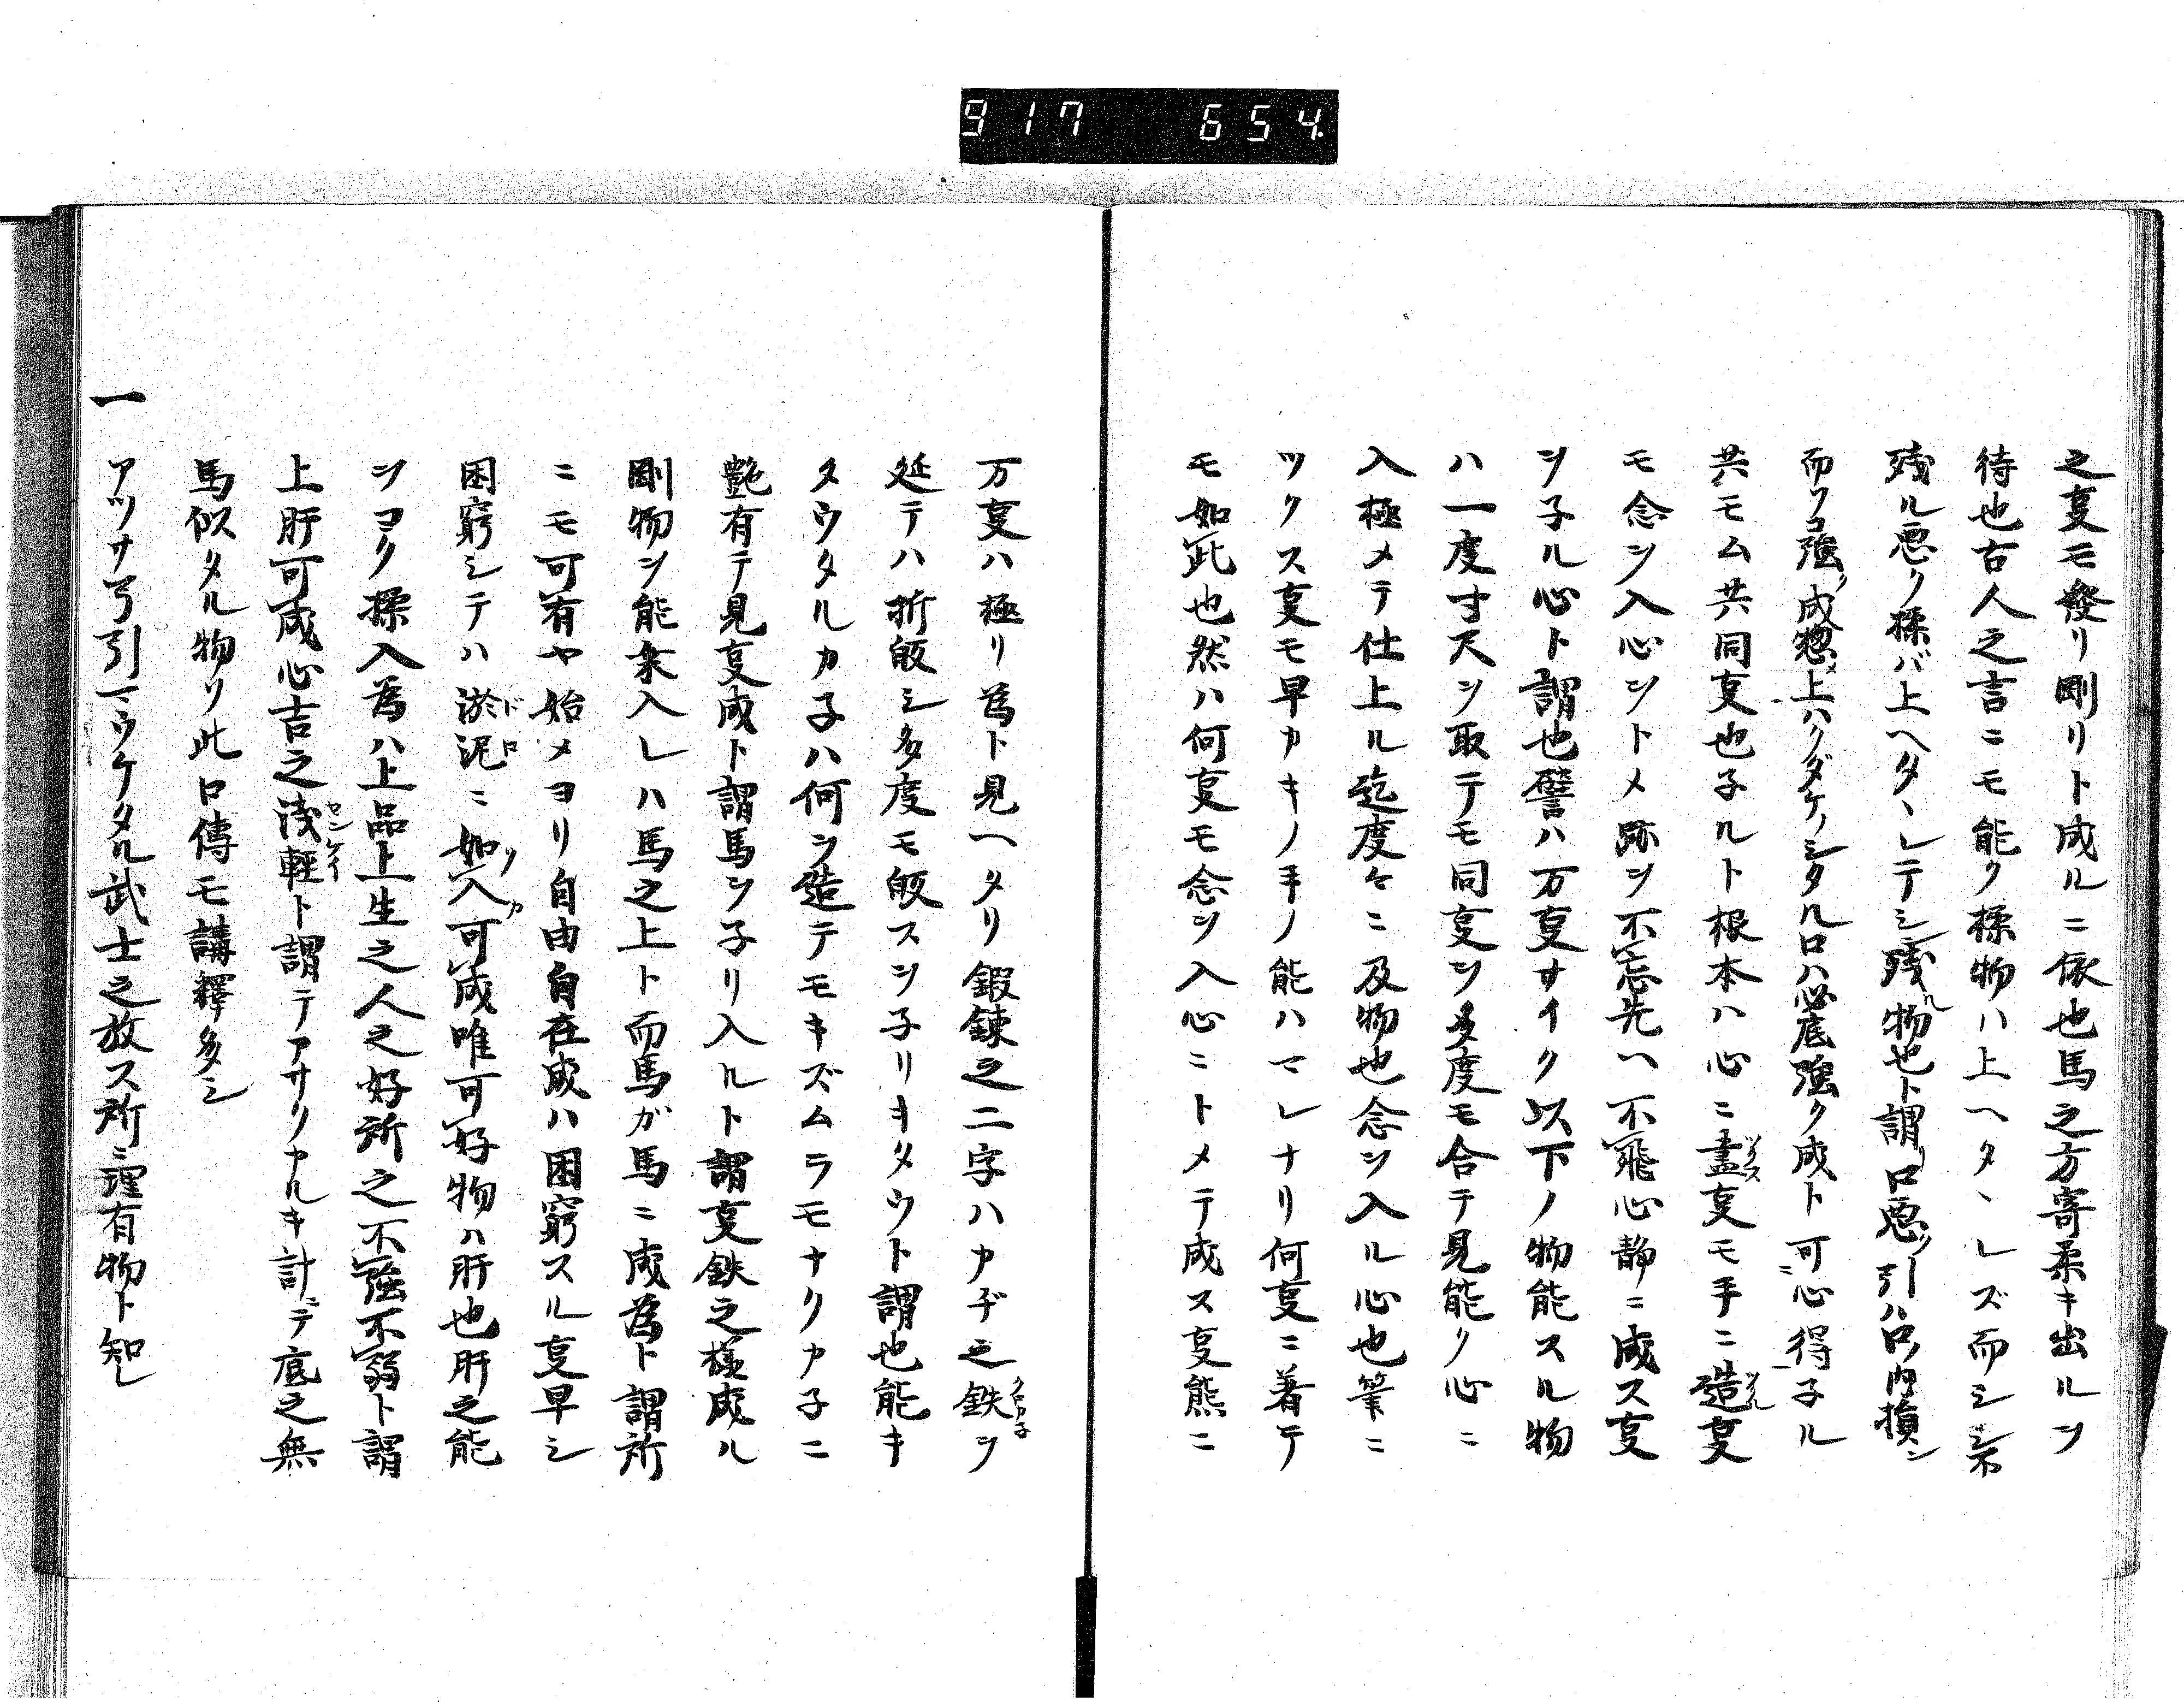 917 654
之㕝モ發リ剛リト成ルニ依也馬之方寄柔キ出ルヲ
待也古人之言ニモ能ク揉物ハ上ヘタヽレズ而シ不
残ル悪ク揉バ上ヘタヽレテシ残ル物也ト謂リ口悪ク引ハ口ノ内損シ
而ワヨ強ク成惣メ上ハクダケノシタル口ハ必底強ク成ト可心得子ル
共モム共同㕝也子ルト根本ハ心ニ盡ツクス㕝モ手ニ造ツクル㕝
モ念ヲ入心ヲトメ跡ヲ不忘先ヘ不飛心静ニ成ス㕝
ヲ子ル心ト謂也譬ハ万㕝サイク以下ノ物能スル物
ハ一度寸尺ヲ取テモ同㕝ヲ多度モ合テ見能ク心ニ
入極メテ仕上ル迄度々ニ及物也念ヲ入ル心也筆ニ
ツクス㕝モ早カキノ手ノ能ハマレナリ何㕝ニ着テ
モ如此也然ハ何㕝モ念ヲ入心ニトメテ成ス㕝熊ニ
万㕝ハ極リ為ト見ヘタリ鍜錬之二字ハカヂ之鉄クロカ子ヲ
延テハ折皈シ多度モ皈スヲ子リキタウト謂也能キ
タウタルカ子ハ何ヲ造テモキズムラモナクカ子ニ
艶有テ見㕝成ト謂馬ヲ子リ入ルト謂㕝鉄之様成ル
剛物ヲ能柔入レハ馬之上ト而馬ガ馬ニ成為ト謂所
ニモ可有ヤ始メヨリ自由自在成ハ困窮スル㕝早シ
困窮シテハ淤泥ドロニ如入ツカ可成唯可好物ハ肝也肝之能
ヲヨク揉入為ハ上品上生之人之好所之不強不弱ト謂
上肝可成心吉之浅軽センケイト謂テアサクナルキ計ニテ底之無
馬似タル物リ此口傳モ講釋多シ
一 アツサ弓引ウケタル武士之放ス所ニ理有物ト知レ